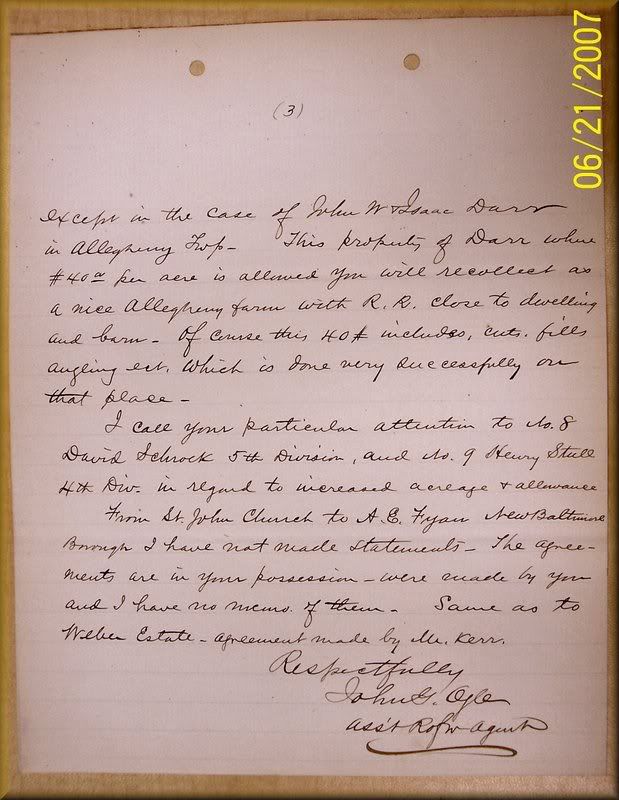 (3)
except in the case of John W & Isaac Darr
in Allegheny Twp- This property of Darr where
$40.00 per acre is allowed you will recollect as
a nice Allegheny farm with R.R. close to dwelling
and barn- Of course this 40$ includes, cuts, fills
angling ect. Which is done very successfully on
that place-
I call your particular attention to No. 8
David Schrock 5th Division, and No. 9 Henry Stull
4th Div. in regard to increased acreage & allowance
From St John Church to A.E. Fryan New Baltimore
Borough I have not made statements- The agree-
ments are in your possession- were made by you
and I have no memo. of them- Same as to
Weber Estate- agreement made by Mr. Kerr.
Respectfully
John G. Ogle
Ass't R of W Agent
06/21/2007